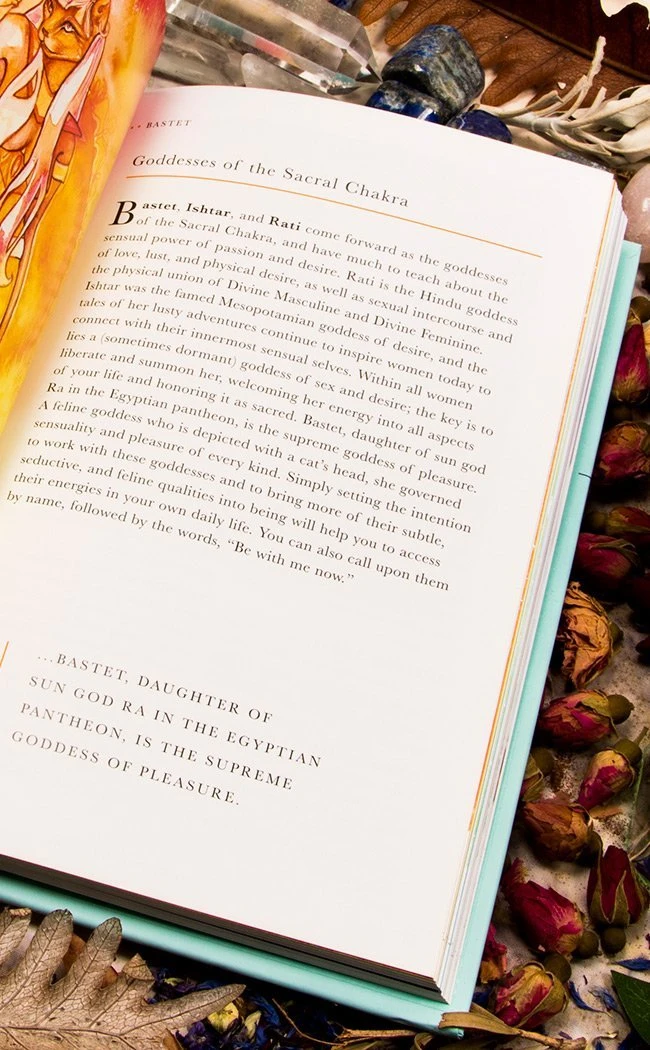 ·· BASTET
Goddesses of the Sacral Chakra
Bastet, Ishtar, and Rati come forward as the goddesses
of the Sacral Chakra, and have much to teach about the
sensual power of passion and desire. Rati is the Hindu goddess
of love, lust, and physical desire, as well as sexual intercourse and
the physical union of Divine Masculine and Divine Feminine.
Ishtar was the famed Mesopotamian goddess of desire, and the
tales of her lusty adventures continue to inspire women today to
connect with their innermost sensual selves. Within all women
lies a (sometimes dormant) goddess of sex and desire; the key is to
liberate and summon her, welcoming her energy into all aspects
of your life and honoring it as sacred. Bastet, daughter of sun god
Ra in the Egyptian pantheon, is the supreme goddess of pleasure.
A feline goddess who is depicted with a cat’s head, she governed
sensuality and pleasure of every kind. Simply setting the intention
to work with these goddesses and to bring more of their subtle,
seductive, and feline qualities into being will help you to access
their energies in your own daily life. You can also call upon them
by name, followed by the words, “Be with me now.”
...BASTET, DAUGHTER OF
SUN GOD RA IN THE EGYPTIAN
PANTHEON, IS THE SUPREME
GODDESS OF PLEASURE.